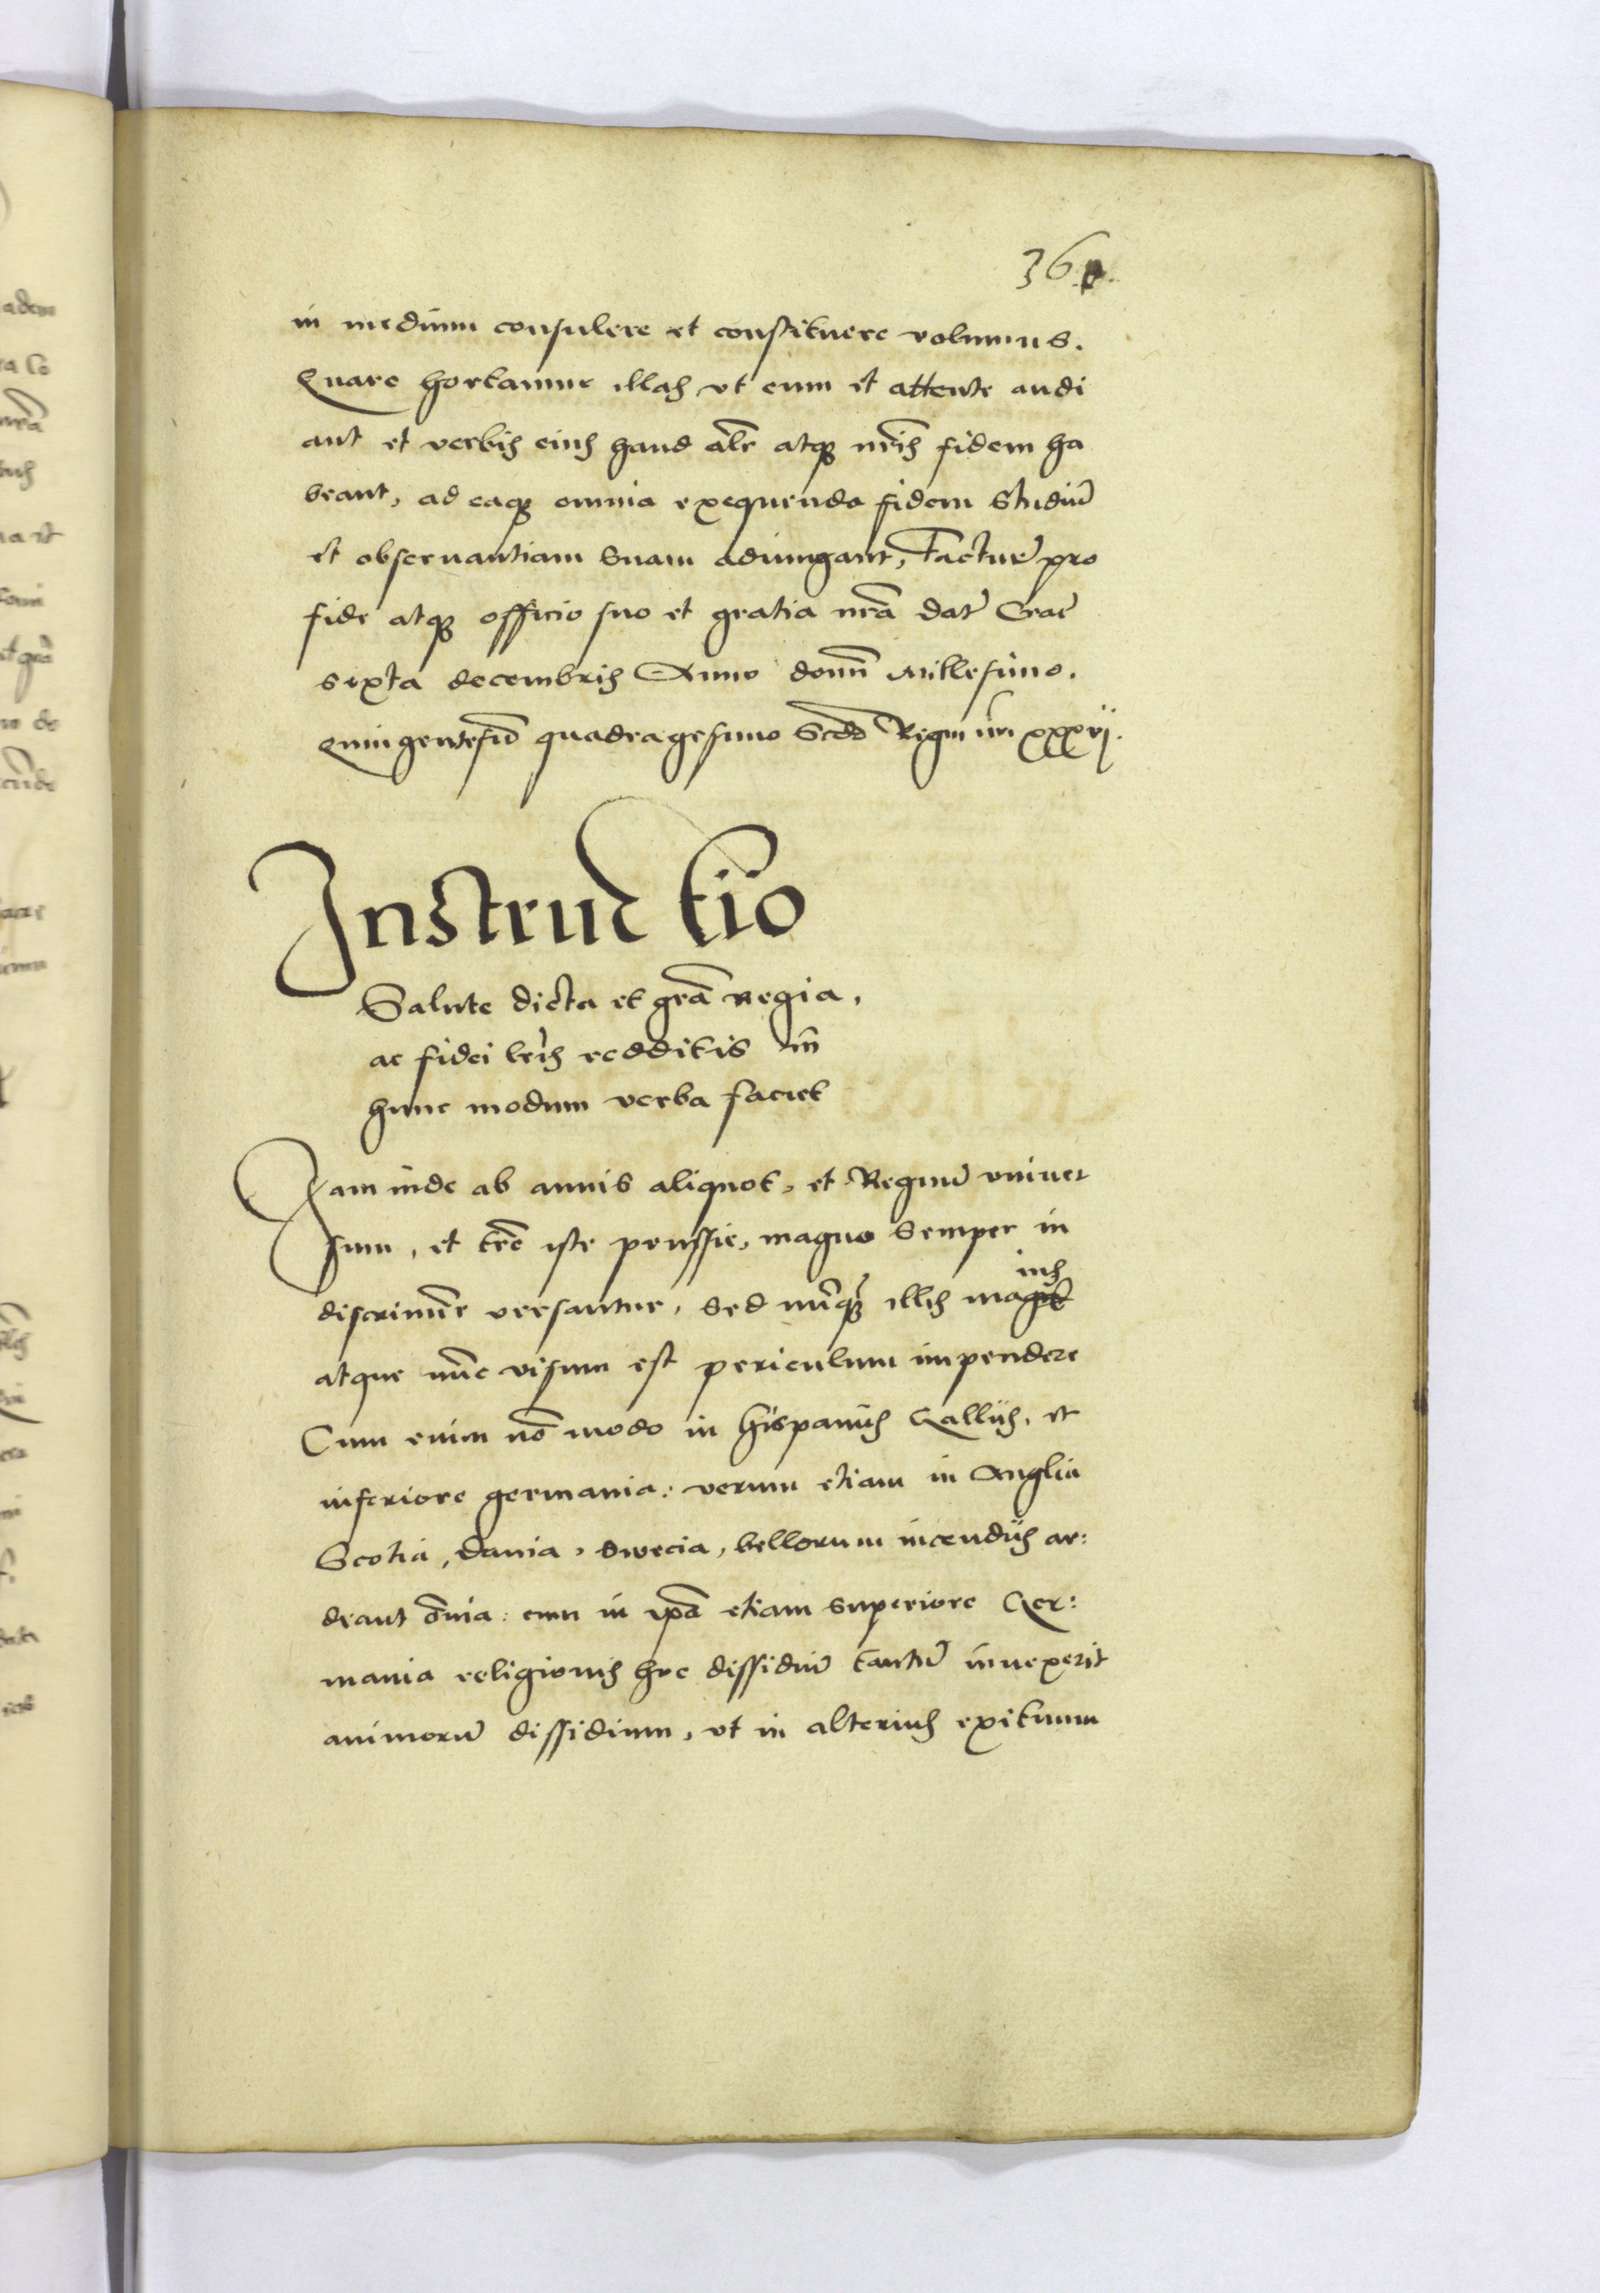 36
in medium consulere et constituere volumus.
Quare hortamur illas vt eum et attente audi
ant et verbis eius haud alr̃ atqȝ nr̃is fidem ha
beant, ad eaqȝ omnia exequenda fidem studiũ
et obseruantiam suam adiungant, facturẽ pro
fide atqȝ officio suo et gratia nr̃a dat̃ Crac̃
sixta decembris Anno domñ millesimo.
quingentesiõ quadragesimo Scdõ Regni nr̃i xxxvj.
Instructio
Salute dicta et gr̃a regia,
ac fidei lr̃is redditis in
hunc modum verba faciet
Jam inde ab annis aliquot, et Regnũ vniuer
sum, et tr̃e iste prussie, magno semper in
discrimine versantur, sed nũqȝ illis magis ius
atque nũc visum est periculum impendere
Cum enim nõ modo in hispaniis Galliis, et
inferiore germania: verum etiam in Anglia
Scotia, Dania, Swecia, bellorum incendiis ar:
deant õnia: cum in ip̃a etiam superiore Ger:
mania religionis hoc dissidiũ tantũ inuexerit
animorũ dissidium, vt in alterius exitium